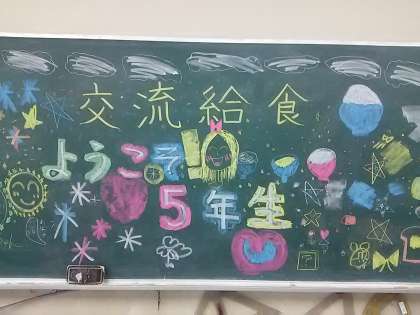 交流給食
ようこそ!
5年生